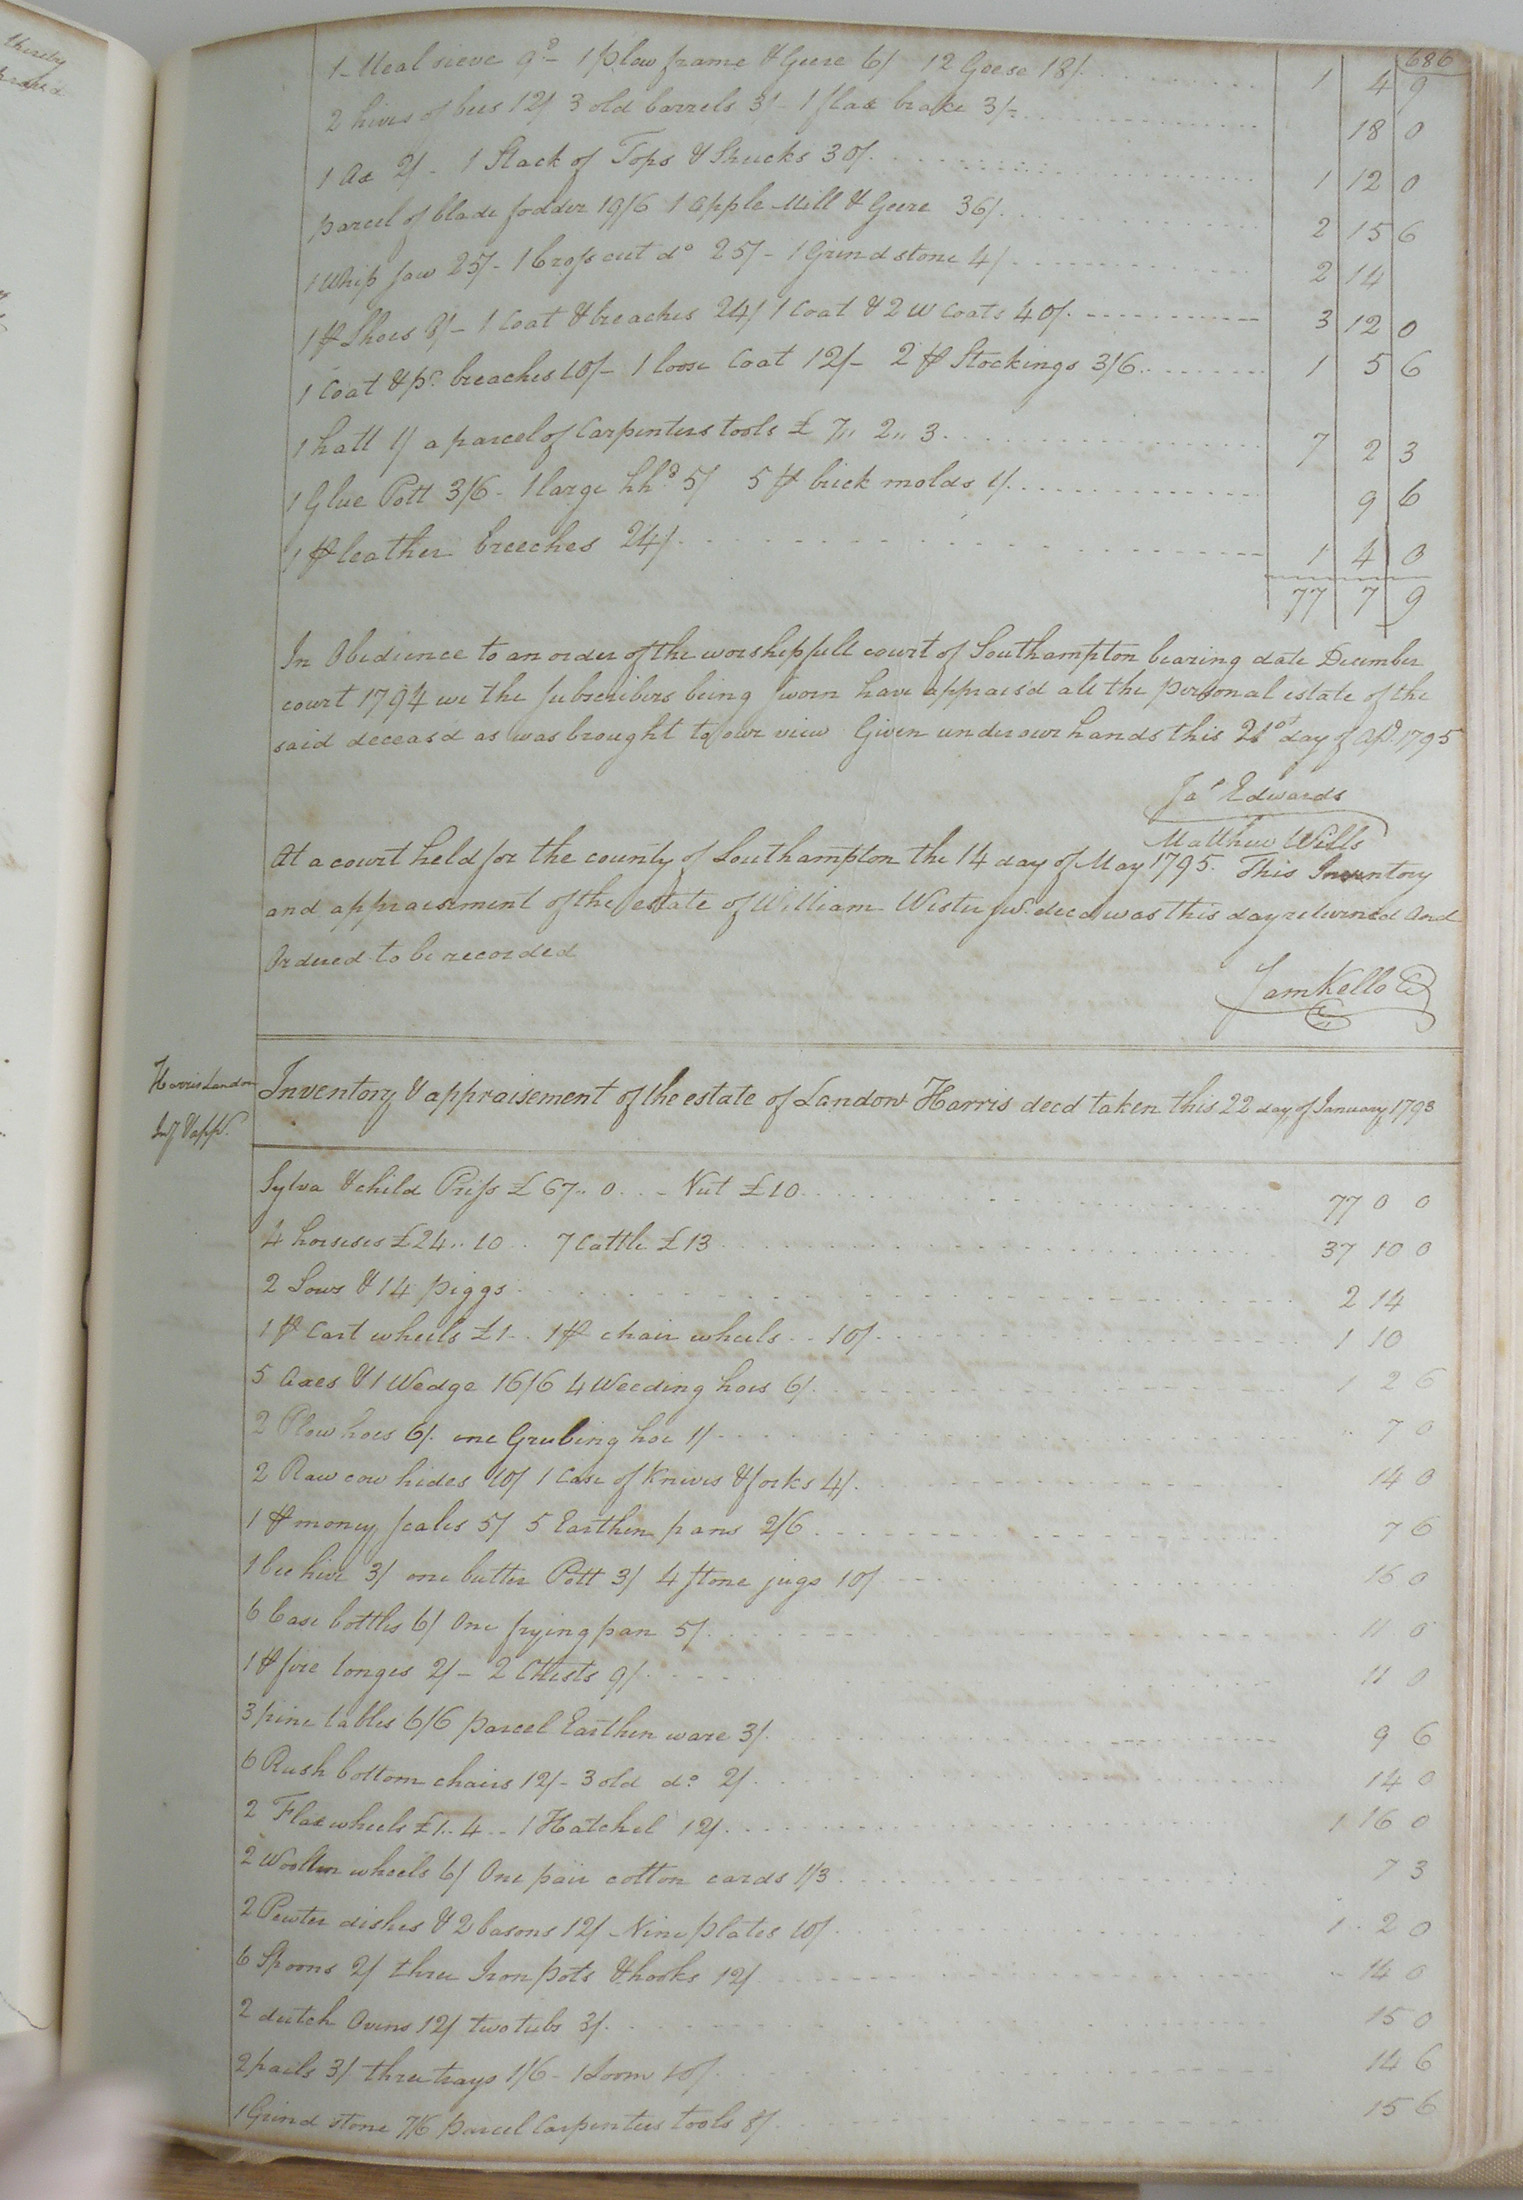 thereby
686
1 Meal sieve 9d - 1 plow frame & Geere 6/ 12 Geese 18/ 1 4 9
2 hives of bees 12/ 3 old barrels 3/ - 1 flax brake 3/- 18 0
1 Ax 2/ - 1 Stack of Tops & Shucks 30/ 1 12 0
parcel of blade fodder 19/6 1 apple Mill & Geere 36/ 2 15 6
1 Whip saw 25/- 1 Cross cut do 25/- 1 Grindstone 4/ 2 14
1 pr Shoes 8/- 1 Coat & breaches 24/ 1 Coat & 2 W Coats 40/ 3 12 0
1 Coat & pr breaches 10/- 1 loose Coat 12/- 2 pr Stockings 3/6 1 5 6
1 hatt 1/ a parcel of Carpenters tools £ 7,, 2,, 3 7 2 3
1 Glue Pott 3/6 - 1 large hhd 5/ 5 pr brick molds 1/ 9 6
1 pr leather breeches 24/ 1 4 0
77 7 9
In Obedience to an order of the worshipfull court of Southampton bearing date December
court 1794 we the subscribers being sworn have appraisd all the personal estate of the
said deceasd as was brought to our view Given under our hands this 21st day of Apl 1795
Jas Edwards
Matthew Wills
At a court held for the county of Southampton the 14 day of May 1795. This Inventory
and appraisement of the estate of William decd was this day returned And
Ordered to be recorded
Sam Kello
Harris Landon
Inventory & appraisement of the estate of Landon Harris decd taken this 22 day of January 1793
Invy & appt.
Sylva & child Priss £67.. 0 .. - Nut £10 77 0 0
4 horseses £24.. 10 .. 7 Cattle £13 37 10 0
2 Sows & 14 piggs 2 14
1 pr Cart wheels £1 .. 1 pr chair wheels .. 10/ 1 10
5 Axes & 1 Wedge 16/6 4 Weeding hoes 6/ 1 2 6
2 Plow hoes 6/. one Grubing hoe 1/ 7 0
2 Raw cow hides 10/ 1 Case of Knives & forks 4/ 14 0
1 pr money scales 5/ 5 Earthen pans 2/6 7 6
1 bee hive 3/ one butter Pott 3/ 4 stone jugs 10/ 16 0
6 Case bottles 6/ One frying pan 5/ 11 0
1 pr fire tonges 2/ - 2 Chests 9/ 11 0
3 pine tables 6/6 parcel Earthen ware 3/ 9 6
6 Rush bottom chairs 12/- 3 old do 2/ 14 0
2 Flax wheels £1.. 4 .. 1 Hatchel 12/ 1 16 0
2 Woollen wheels 6/ One pair cotton cards 1/3 7 3
2 Pewter dishes & 2 basons 12/ - Nine plates 10/ 1 2 0
6 Spoons 2/ three Iron pots & hooks 12/ 14 0
2 dutch Ovens 12/ two tubs 3/ 15 0
2 pails 3/ three trays 1/6 - 1 Loom 10/ 14 6
1 Grind stone 7/6 parcel Carpenters tools 8/ 15 6